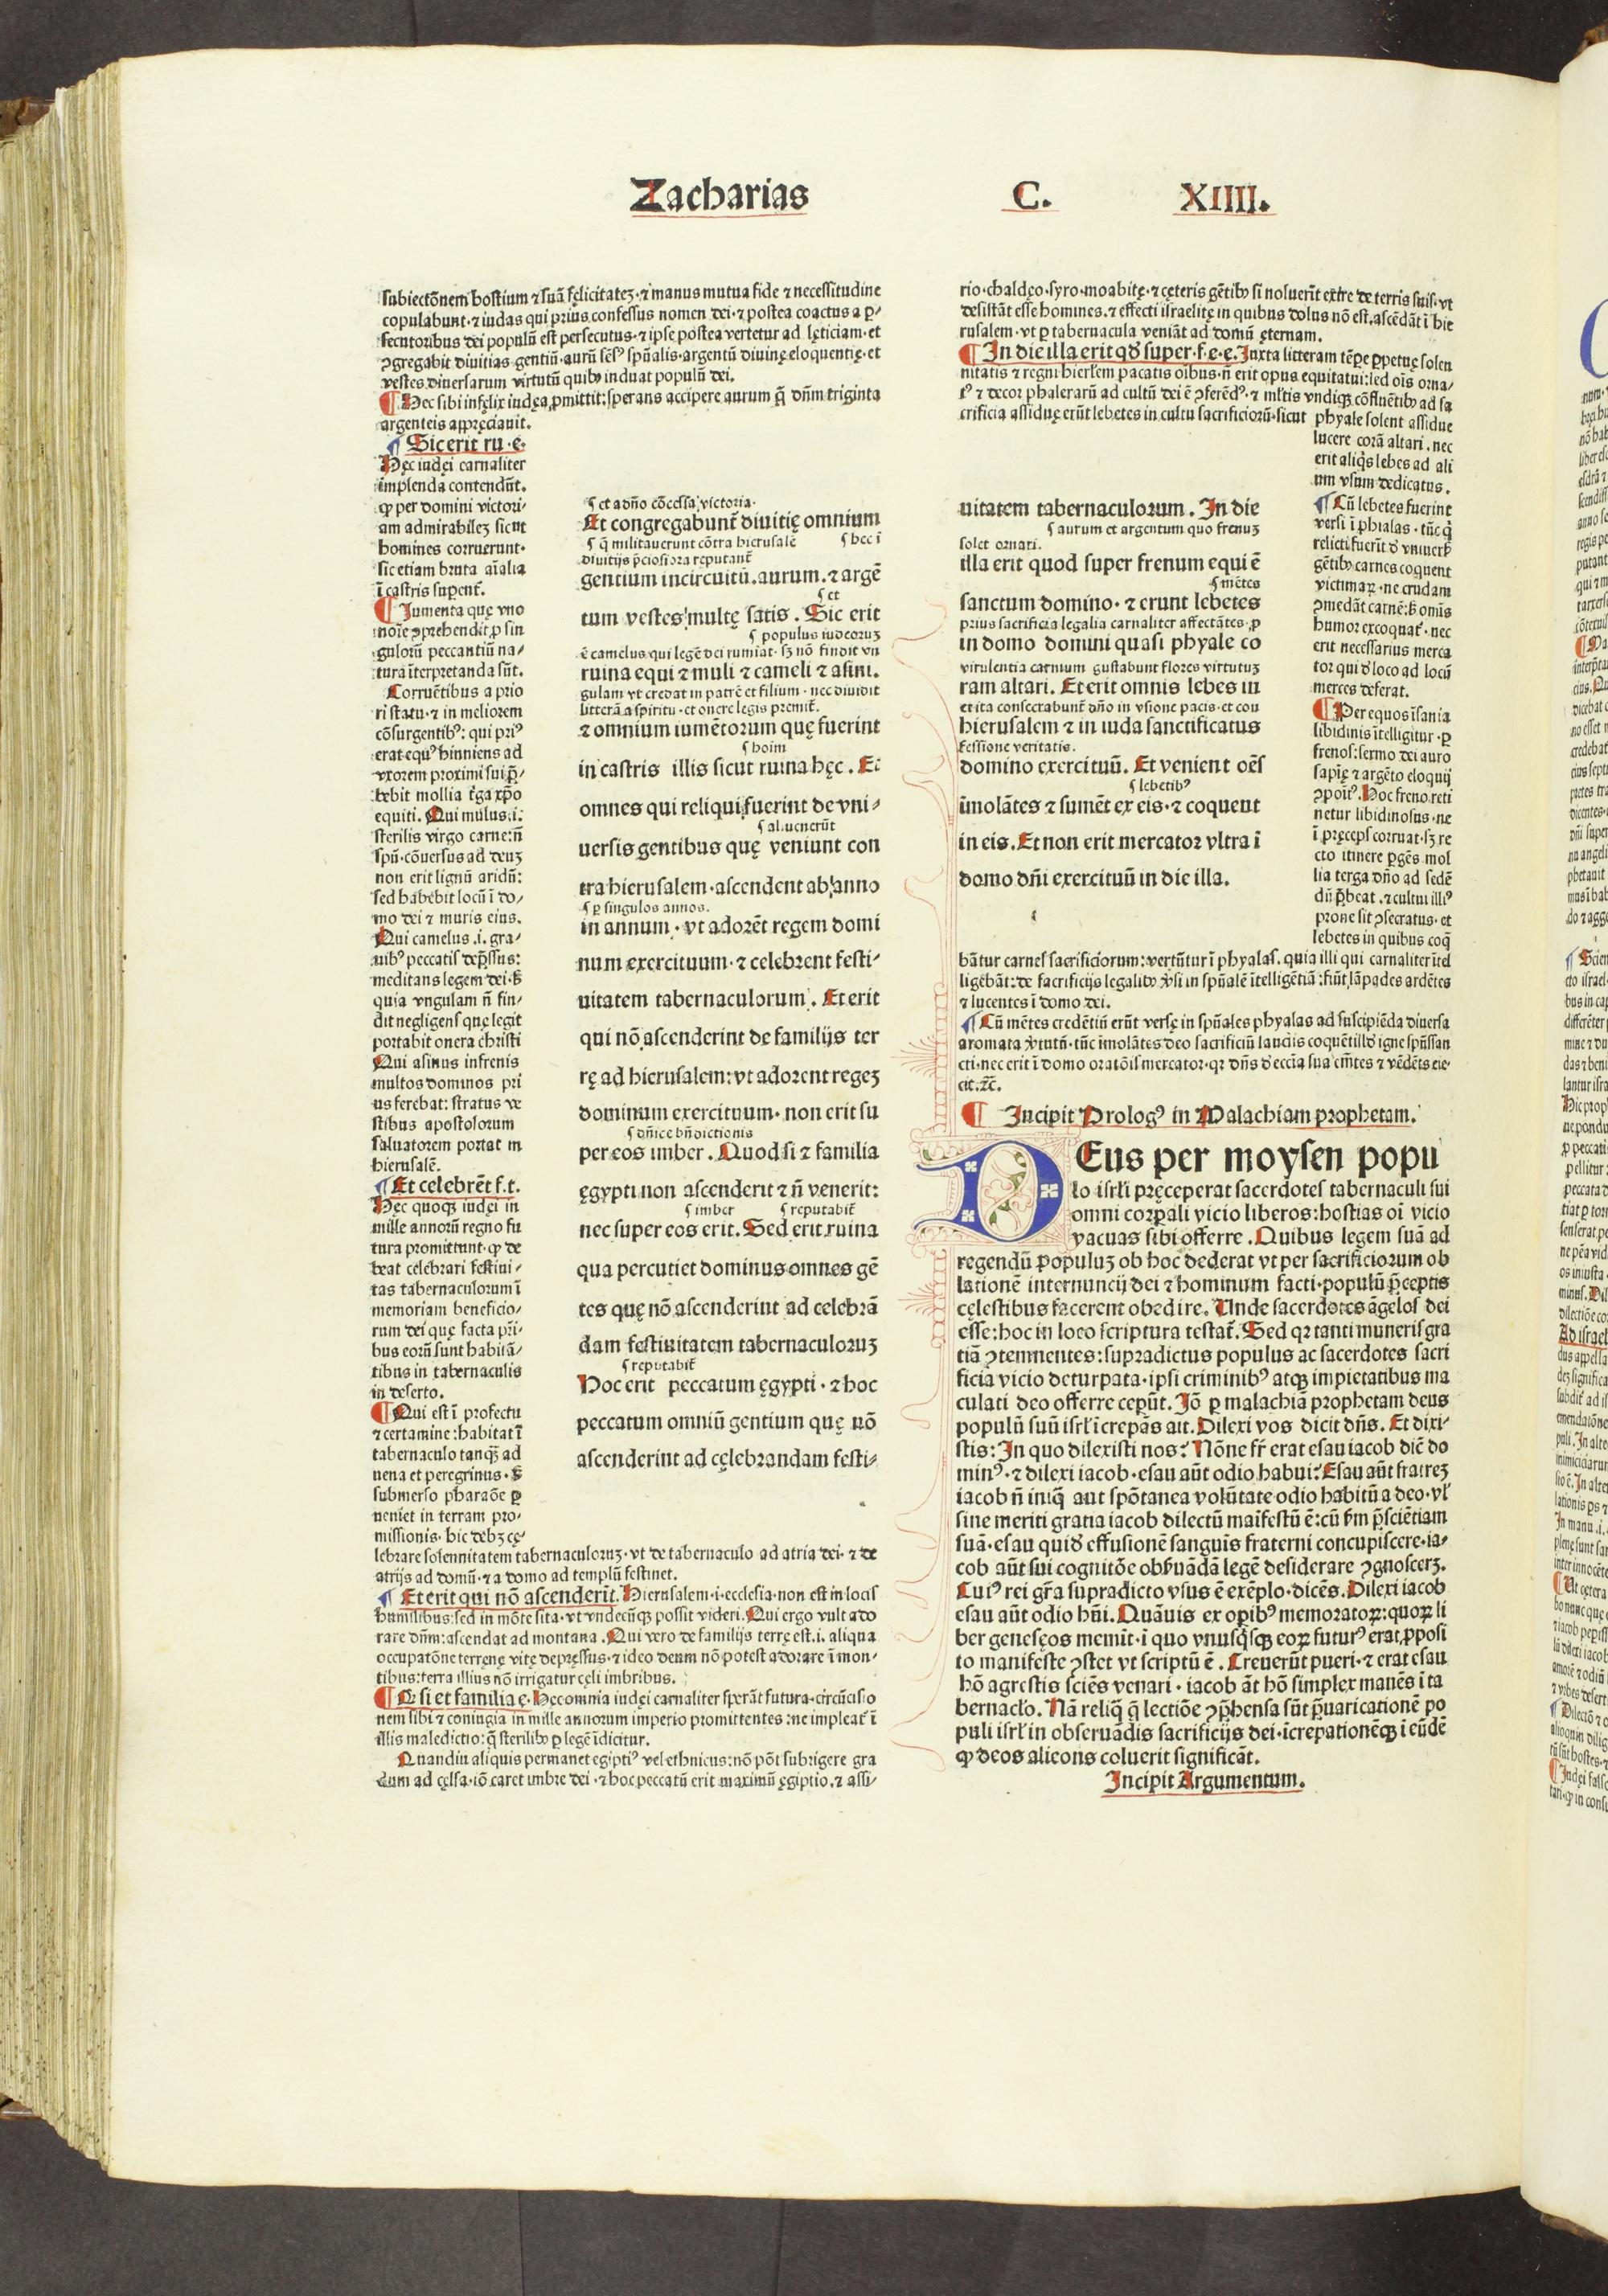 Zacharias C. XIIII.
subiectōnem hostium ⁊ suā fęlicitateꝫ·⁊ manus mutua fide ⁊ necessitudine
copulabunt·⁊ iudas qui prius confessus nomen dei·⁊ postea coactus a ꝑ-
secutoribus dei populū est persecutus·⁊ ipse postea vertetur ad lęticiam·et
ꝯgregabit diuitias gentiū·aurū sēsꝰ spūalis·argentū diuinę eloquentię·et
vestes diuersarum virtutū quibꝰ induat populū dei.
¶ Hec sibi infęlix iudęa ꝓmittit: sperans accipere aurum q̄ dn̄m triginta
argenteis appręciauit.
¶ Sic erit ru·e·
Hęc iudęi carnaliter
implenda contendūt.
ꝙ per domini victori-
am admirabileꝫ sicut
homines corruerunt·
sic etiam bruta aīalia
ī castris suꝑent̄.
¶ Jumenta quę vno
noīe ꝯprehendit, ꝓ sin
gulorū peccantiū na/
tura īterpretanda sūt.
Corruētibus a prio
ri statu·⁊ in meliorem
cōsurgentibꝰ: qui priꝰ
erat equꝰ hinniens ad
vxorem proximi sui p̄-
bebit mollia t̄ga xp̄o
equiti. Qui mulus.i.
sterilis virgo carne: n̄
spū·cōuersus ad deuꝫ
non erit lignū aridū:
sed habebit locū ī do/
mo dei ⁊ muris eius.
Qui camelus .i. gra-
uibꝰ peccatis dep̄ssus:
meditans legem dei·ꝫ
quia vngulam n̄ fin/
dit negligens quę legit
portabit onera christi
Qui asinus infrenis
multos dominos pri
us ferebat: stratus ve
stibus apostolorum
saluatorem portat in
hierusalē.
¶ Et celebrēt f.t.
Hęc quoqꝫ iudęi in
mille annorū regno fu
tura promittunt·ꝙ de
beat celebrari festiui-
tas tabernaculorum ī
memoriam beneficio/
rum dei quę facta pri-
bus eorū sunt habitā/
tibus in tabernaculis
in deserto.
¶ Qui est ī profectu
⁊ certamine: habitat ī
tabernaculo tanqꝫ ad
uena et peregrinus·ꝫ
submerso pharaōe ꝑ
ueniet in terram pro-
missionis·hic debꝫ cę-
lebrare solennitatem tabernaculoruꝫ·vt de tabernaculo ad atria dei·⁊ de
atrijs ad domū·⁊ a domo ad templū festinet.
¶ Et erit qui nō ascenderīt. Hierusalem·i·ecclesia·non est in locis
humilibus: sed in mōte sita·vt vndecūqꝫ possit videri. Qui ergo vult ado
rare dn̄m: ascendat ad montana. Qui vero de familijs terrę est.i. aliqua
occupatōne terrenę vitę depręssus·⁊ ideo deum nō potest adorare ī mon-
tibus: terra illius nō irrigatur cęli imbribus.
¶ Q si et familia ę· Hec omnia iudęi carnaliter sperāt futura·circūcisio
nem sibi ⁊ coniugia in mille annorum imperio promittentes: ne impleat̄ ī
illis maledictio: q̄ sterilibꝰ ꝑ legē īdicitur.
Quandiu aliquis permanet egiptiꝰ vel ethnicus: nō pōt subrigere gra
dum ad cęlsa·iō caret imbre dei·⁊ hoc peccatū erit maximū ęgiptio.⁊ assi-
¶ et a dn̄o cōcessa victoria·
Et congregabunt̄ diuitię omnium
¶ q̄ militauerunt cōtra hierusalē ¶ hec ī
diuitijs p̄ciosiora reputant̄
gentium incircuitū. aurum. ⁊ argē
¶ et
tum vestes multę satis. Sic erit
¶ populus iudeoruꝫ
ē camelus qui legē dei rumīat·sꝫ nō findit vn
ruina equi ⁊ muli ⁊ cameli ⁊ asini.
gulam vt credat in patrē et filium·nec diuidit
litterā a spiritu·et onere legis premit̄.
⁊ omnium iumētorum quę fuerint
¶ hoim
in castris illis sicut ruina hęc. Et
omnes qui reliqui fuerint de vni-
¶ al. uenerūt
uersis gentibus quę veniunt con
tra hierusalem·ascendent ab anno
¶ ꝑ singulos annos.
in annum·vt adorēt regem domi
num exercituum·⁊ celebrent festi-
uitatem tabernaculorum. Et erit
qui nō ascenderint de familijs ter
rę ad hierusalem: vt adorent regeꝫ
dominum exercituum·non erit su
¶ dn̄ice bn̄dictionis
per eos imber. Quod si ⁊ familia
ęgypti non ascenderit ⁊ n̄ venerit:
¶ imber ¶ reputabit̄
nec super eos erit. Sed erit ruina
qua percutiet dominus omnes gē
tes quę nō ascenderint ad celebrā
dam festiuitatem tabernaculoruꝫ
¶ reputabit̄
Hoc erit peccatum ęgypti·⁊ hoc
peccatum omniū gentium quę nō
ascenderint ad cęlebrandam festi-
rio·chaldęo·syro·moabitę·⁊ cęteris gētibꝰ si noluerīt exire de terris suis·vt
desistāt esse homines.⁊ effecti israelitę in quibus dolus nō est. ascēdāt ī hie
rusalem·vt ꝑ tabernacula veniāt ad domū ęternam.
¶ In die illa erit qđ super·f·e·ę. Juxta litteram tēꝑe ꝑpetuę solen
nitatis ⁊ regni hierlem pacatis oībus·n̄ erit opus equitatui: sed oīs orna/
tꝰ ⁊ decor phalerarū ad cultū dei ē ꝯferēdꝰ·⁊ ml̄tis vndiqꝫ cōfluētibꝰ ad sa
crificia assiduę erūt lebetes in cultu sacrificiorū·sicut phyale solent assidue
lucere corā altari·nec
erit aliq̄s lebes ad ali
um vsum dedicatus.
¶ Cū lebetes fuerint
versi ī phialas·tūc q̄
relicti fuerīt đ vniuerꝭ
gētibꝰ carnes coquent
victimaꝝ·ne crudam
ꝯmedāt carnē: ꝫ omīs
humor excoquat̄·nec
erit necessarius merca
tor qui đ loco ad locū
merces deferat.
¶ Per equos īsania
libidinis ītelligitur·ꝑ
frenos: sermo dei auro
sapię ⁊ argēto eloquij
ꝯpoītꝰ. Hoc freno reti
netur libidinosus·ne
ī pręceps corruat·sꝫ re
cto itinere ꝑgēs mol
lia terga dn̄o ad sedē
dū p̄beat·⁊ cultui illiꝰ
prone sit ꝯsecratus·et
lebetes in quibus coq̄
uitatem tabernaculorum. In die
¶ aurum et argentum quo frenuꝫ
solet ornari.
illa erit quod super frenum equi ē
¶ mētes
sanctum domino·⁊ erunt lebetes
prius sacrificia legalia carnaliter affectātes·ꝓ
in domo domini quasi phyale co
virulentia carnium gustabunt flores virtutuꝫ
ram altari. Et erit omnis lebes in
et ita consecrabunt̄ dn̄o in visione pacis·et con
hierusalem ⁊ in iuda sanctificatus
fessione veritatis.
domino exercituū. Et venient oēs
¶ lebetibꝰ
īmolātes ⁊ sumēt ex eis·⁊ coquent
in eis. Et non erit mercator vltra ī
domo dn̄i exercituū in die illa.
bātur carnes sacrificiorum: vertūtur ī phyalas. quia illi qui carnaliter ītel
ligēbāt: de sacrificijs legalibꝰ v̄si in spūalē ītelligētiā: fiūt lāpades ardētes
⁊ lucentes ī domo dei.
¶ Cū mētes credētiū erūt versę in spūales phyalas ad suscipiēda diuersa
aromata v̄tutū·tūc īmolātes deo sacrificiū laudis coquēt illđ igne spūssan
cti·nec erit ī domo oratōis mercator·qꝛ dn̄s đ ecclia sua em̄tes ⁊ vēdētes eie-
cit.⁊c̄.
¶ Incipit Prologꝰ in Malachiam prophetam.
DEus per moysen popu
lo isrl̄i pręceperat sacerdotes tabernaculi sui
omni corꝑali vicio liberos: hostias oī vicio
vacuas sibi offerre. Quibus legem suā ad
regendū populuꝫ ob hoc dederat vt per sacrificiorum ob
lationē internuncij dei ⁊ hominum facti·populū p̄ceptis
cęlestibus facerent obedire. Unde sacerdotes āgelos dei
esse: hoc in loco scriptura testat̄. Sed qꝛ tanti muneris gra
tiā ꝯtemnentes: supradictus populus ac sacerdotes sacri
ficia vicio deturpata·ipsi criminibꝰ atqꝫ impietatibus ma
culati deo offerre cepūt. Jō ꝑ malachiā prophetam deus
populū suū isrl̄ īcrepās ait. Dilexi vos dicit dn̄s. Et dixi-
stis: In quo dilexisti nos? Nōne fr̄ erat esau iacob dic̄ do
minꝰ·⁊ dilexi iacob·esau aūt odio habui? Esau aūt fratreꝫ
iacob n̄ iniq̄ aut spōtanea volūtate odio habitū a deo·vl̄
sine meriti gratia iacob dilectū maīfestū ē: cū ẜm p̄sciētiam
suā·esau quiđ effusionē sanguīs fraterni concupiscere·ia-
cob aūt sui cognitōe obẜuādā legē desiderare ꝯgnoscerꝫ.
Cuiꝰ rei gr̄a supradicto vsus ē exēplo·dicēs. Dilexi iacob
esau aūt odio hūi. Quāuis ex oꝑibꝰ memoratoꝝ: quoꝝ li
ber geneseos memīt·ī quo vnusq̄sqꝫ eoꝝ futurꝰ erat, ꝓposi
to manifeste ꝯstet vt scriptū ē. Creuerūt pueri·⁊ erat esau
hō agrestis sciēs venari·iacob āt hō simplex manēs ī ta
bernaclo. Nā reliq̄ q̄ lectiōe ꝯp̄hensa sūt p̄uaricationē po
puli isrl̄ in obseruādis sacrificijs dei·īcrepationēqꝫ ī eūdē
ꝙ deos alienos coluerit significāt.
Incipit Argumentum.